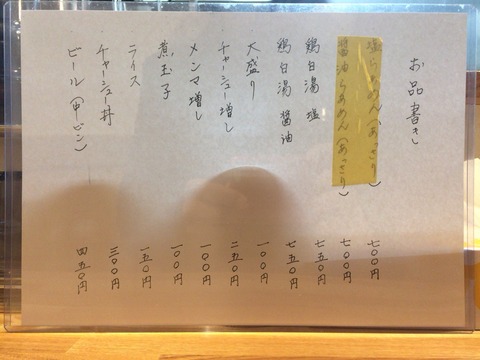 お品書き
塩らぁめん(あっさり) 七〇〇円
醤油らぁめん(あっさり) 七〇〇円
鶏白湯 塩 七五〇円
鶏白湯 醤油 七五〇円
大盛り 一〇〇円
チャーシュー増し 二五〇円
メンマ増し 一〇〇円
煮玉子 一〇〇円
ライス 一五〇円
チャーシュー丼 三〇〇円
ビール(中ビン) 四五〇円